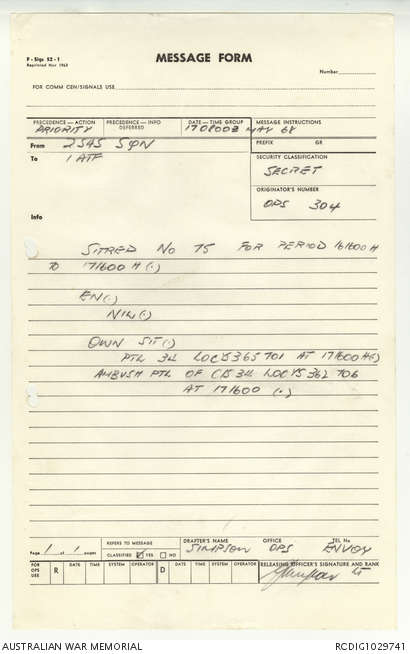 F - Sigs 52 - 1
Reprinted Nov 1963
MESSAGE FORM
Number
FOR COMM CEN/SIGNALS USE
PRECEDENCE—ACTION
PRIORITY
PRECEDENCE—INFO
DEFERRED
DATE—TIME GROUP
170800Z MAY 68
MESSAGE INSTRUCTIONS
PREFIX GR
From 2SAS SQN
To 1 ATF
SECURITY CLASSIFICATION
SECRET
ORIGINATOR'S NUMBER
OPS 304
Info
SITREP No 75 FOR PERIOD 161600H
TO 171600 H (.)
EN (.)
NIL (.)
OWN SIT (.)
PTL 34 LOC YS 365 701 AT 171600H (.)
AMBUSH PTL OF C/S 34 LOC YS 362 706
AT 171600 (.)
Page 1 of 1 pages
REFERS TO MESSAGE
CLASSIFIED YES NO
DRAFTER'S NAME
SIMPSON
OFFICE
OPS
TEL No
ENVOY
FOR OPS USE
R DATE TIME SYSTEM OPERATOR D DATE TIME SYSTEM OPERATOR
RELEASING OFFICER'S SIGNATURE AND RANK
AUSTRALIAN WAR MEMORIAL
RCDIG1029741